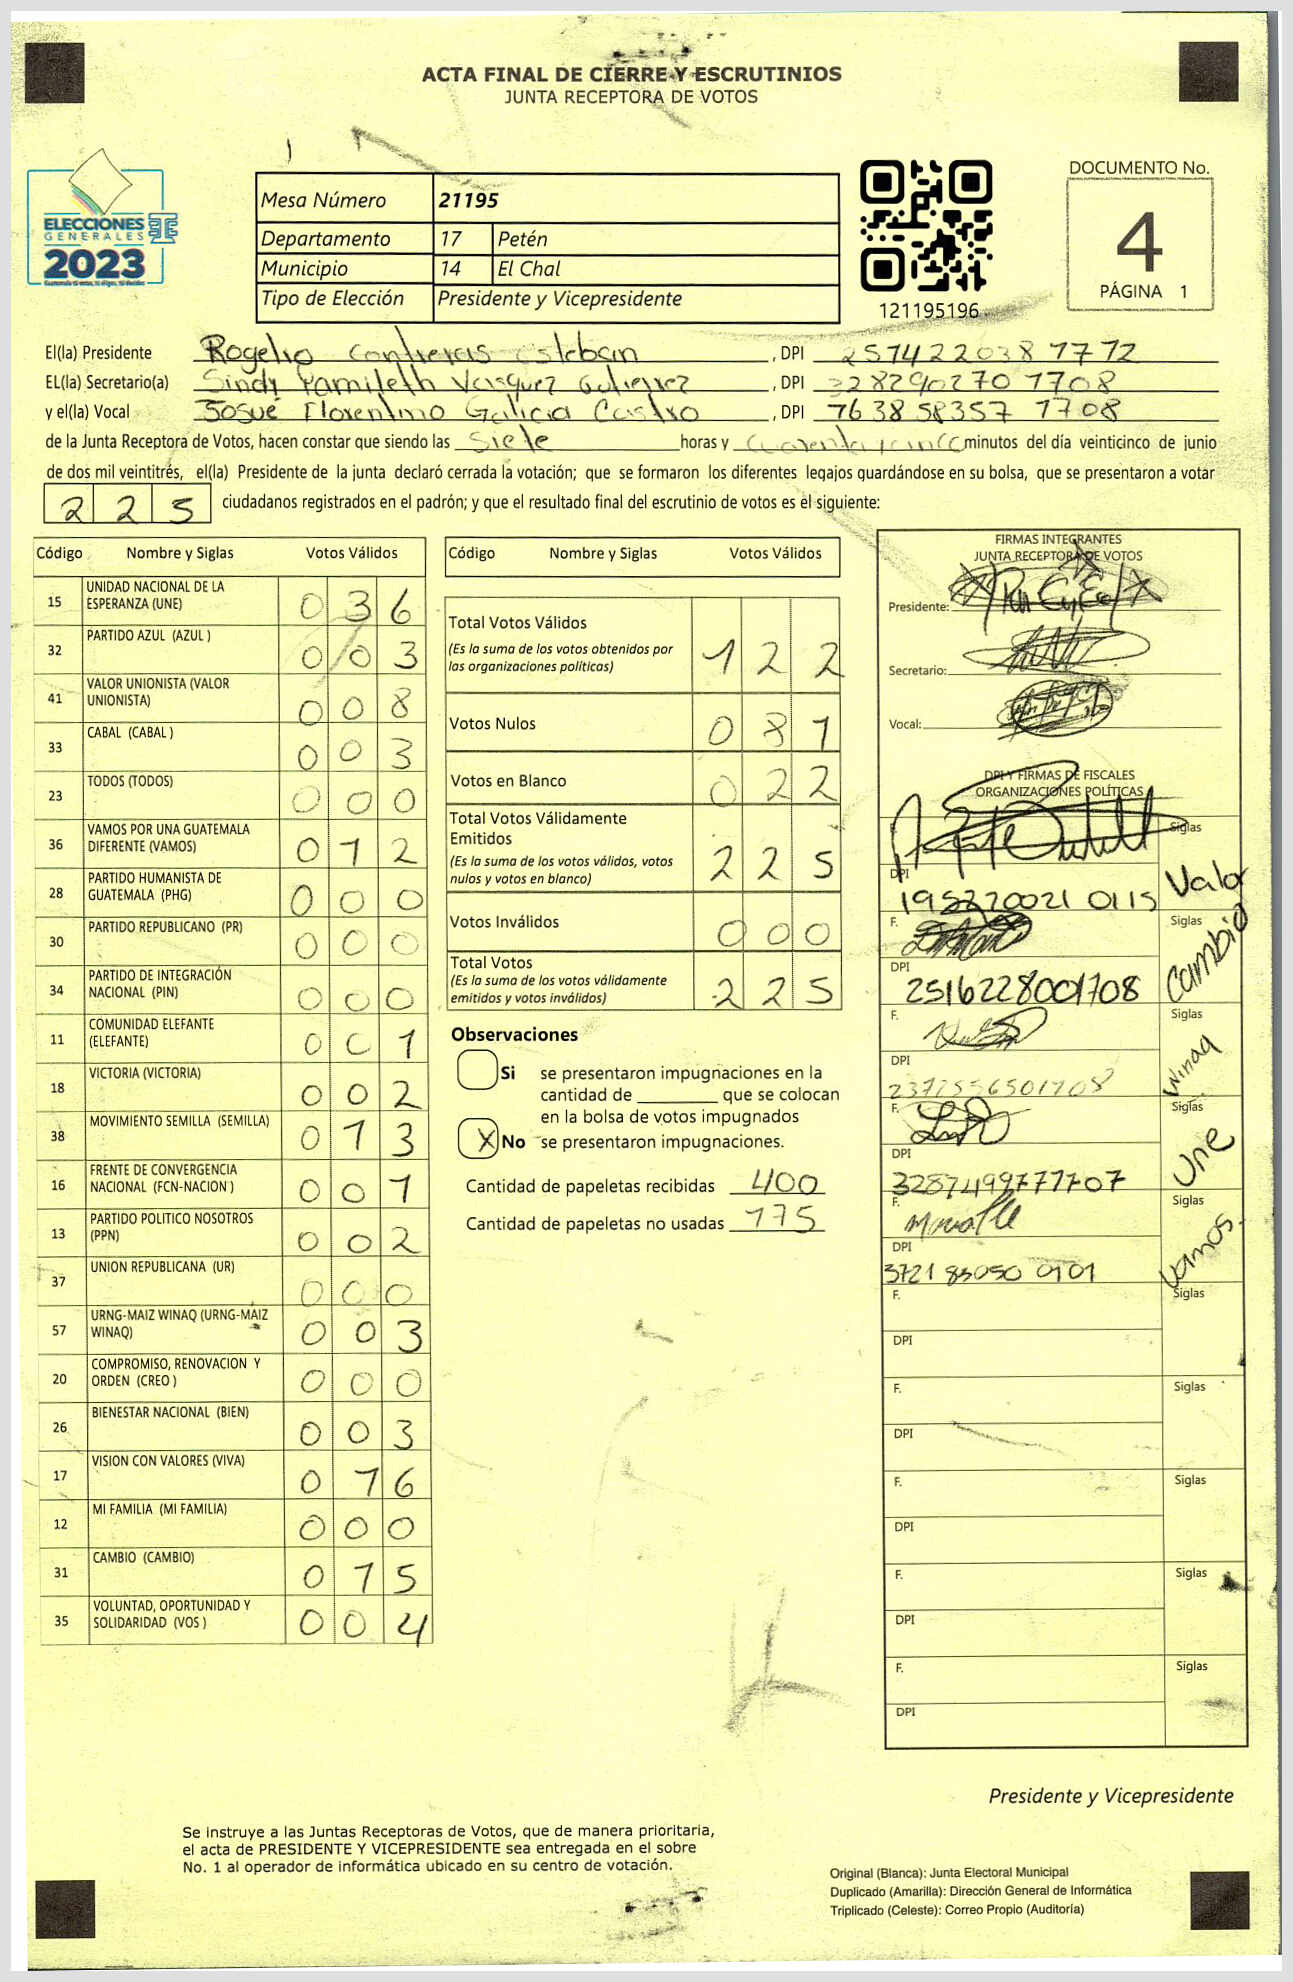 ACTA FINAL DE CIERRE Y ESCRUTINIOS
JUNTA RECEPTORA DE VOTOS
ELECCIONES
GENERALES
2023
Mesa Número 21195
Departamento 17 Petén
Municipio 14 El Chal
Tipo de Elección Presidente y Vicepresidente
121195196
DOCUMENTO No.
4
PÁGINA 1
El(la) Presidente Rogelio Contreras Esteban , DPI 2574220381712
EL(la) Secretario(a) Sindy Yamileth Vasquez Gutierrez , DPI 3282902701708
y el(la) Vocal Josué Florentino Galicia Castro , DPI 7638583571708
de la Junta Receptora de Votos, hacen constar que siendo las Siete horas y minutos del día veinticinco de junio
de dos mil veintitrés, el(la) Presidente de la junta declaró cerrada la votación; que se formaron los diferentes legajos guardándose en su bolsa, que se presentaron a votar
225 ciudadanos registrados en el padrón; y que el resultado final del escrutinio de votos es el siguiente:
Código Nombre y Siglas Votos Válidos
15 UNIDAD NACIONAL DE LA ESPERANZA (UNE) 036
32 PARTIDO AZUL (AZUL ) 003
41 VALOR UNIONISTA (VALOR UNIONISTA) 008
33 CABAL (CABAL ) 003
23 TODOS (TODOS) 000
36 VAMOS POR UNA GUATEMALA DIFERENTE (VAMOS) 012
28 PARTIDO HUMANISTA DE GUATEMALA (PHG) 000
30 PARTIDO REPUBLICANO (PR) 000
34 PARTIDO DE INTEGRACIÓN NACIONAL (PIN) 000
11 COMUNIDAD ELEFANTE (ELEFANTE) 001
18 VICTORIA (VICTORIA) 002
38 MOVIMIENTO SEMILLA (SEMILLA) 013
16 FRENTE DE CONVERGENCIA NACIONAL (FCN-NACION ) 001
13 PARTIDO POLITICO NOSOTROS (PPN) 002
37 UNION REPUBLICANA (UR) 000
57 URNG-MAIZ WINAQ (URNG-MAIZ WINAQ) 003
20 COMPROMISO, RENOVACION Y ORDEN (CREO ) 000
26 BIENESTAR NACIONAL (BIEN) 003
17 VISION CON VALORES (VIVA) 016
12 MI FAMILIA (MI FAMILIA) 000
31 CAMBIO (CAMBIO) 015
35 VOLUNTAD, OPORTUNIDAD Y SOLIDARIDAD (VOS ) 004
Código Nombre y Siglas Votos Válidos
Total Votos Válidos 122
(Es la suma de los votos obtenidos por
las organizaciones políticas)
Votos Nulos 081
Votos en Blanco 022
Total Votos Válidamente
Emitidos 225
(Es la suma de los votos válidos, votos
nulos y votos en blanco)
Votos Inválidos 000
Total Votos 225
(Es la suma de los votos válidamente
emitidos y votos inválidos)
Observaciones
Si se presentaron impugnaciones en la
cantidad de ________ que se colocan
en la bolsa de votos impugnados
X No se presentaron impugnaciones.
Cantidad de papeletas recibidas 400
Cantidad de papeletas no usadas 175
FIRMAS INTEGRANTES
JUNTA RECEPTORA DE VOTOS
Presidente:
Secretario:
Vocal:
DPI Y FIRMAS DE FISCALES
ORGANIZACIONES POLÍTICAS
F. Siglas Valor
DPI
F. Siglas Cambio
DPI 2516228001708
F. Siglas Winaq
DPI 2372556501708
F. Siglas Une
DPI 3287499777707
F. Siglas Vamos
DPI 3721 83050 0101
F. Siglas
DPI
F. Siglas
DPI
F. Siglas
DPI
F. Siglas
DPI
F. Siglas
DPI
Presidente y Vicepresidente
Se instruye a las Juntas Receptoras de Votos, que de manera prioritaria,
el acta de PRESIDENTE Y VICEPRESIDENTE sea entregada en el sobre
No. 1 al operador de informática ubicado en su centro de votación.
Original (Blanca): Junta Electoral Municipal
Duplicado (Amarilla): Dirección General de Informática
Triplicado (Celeste): Correo Propio (Auditoría)